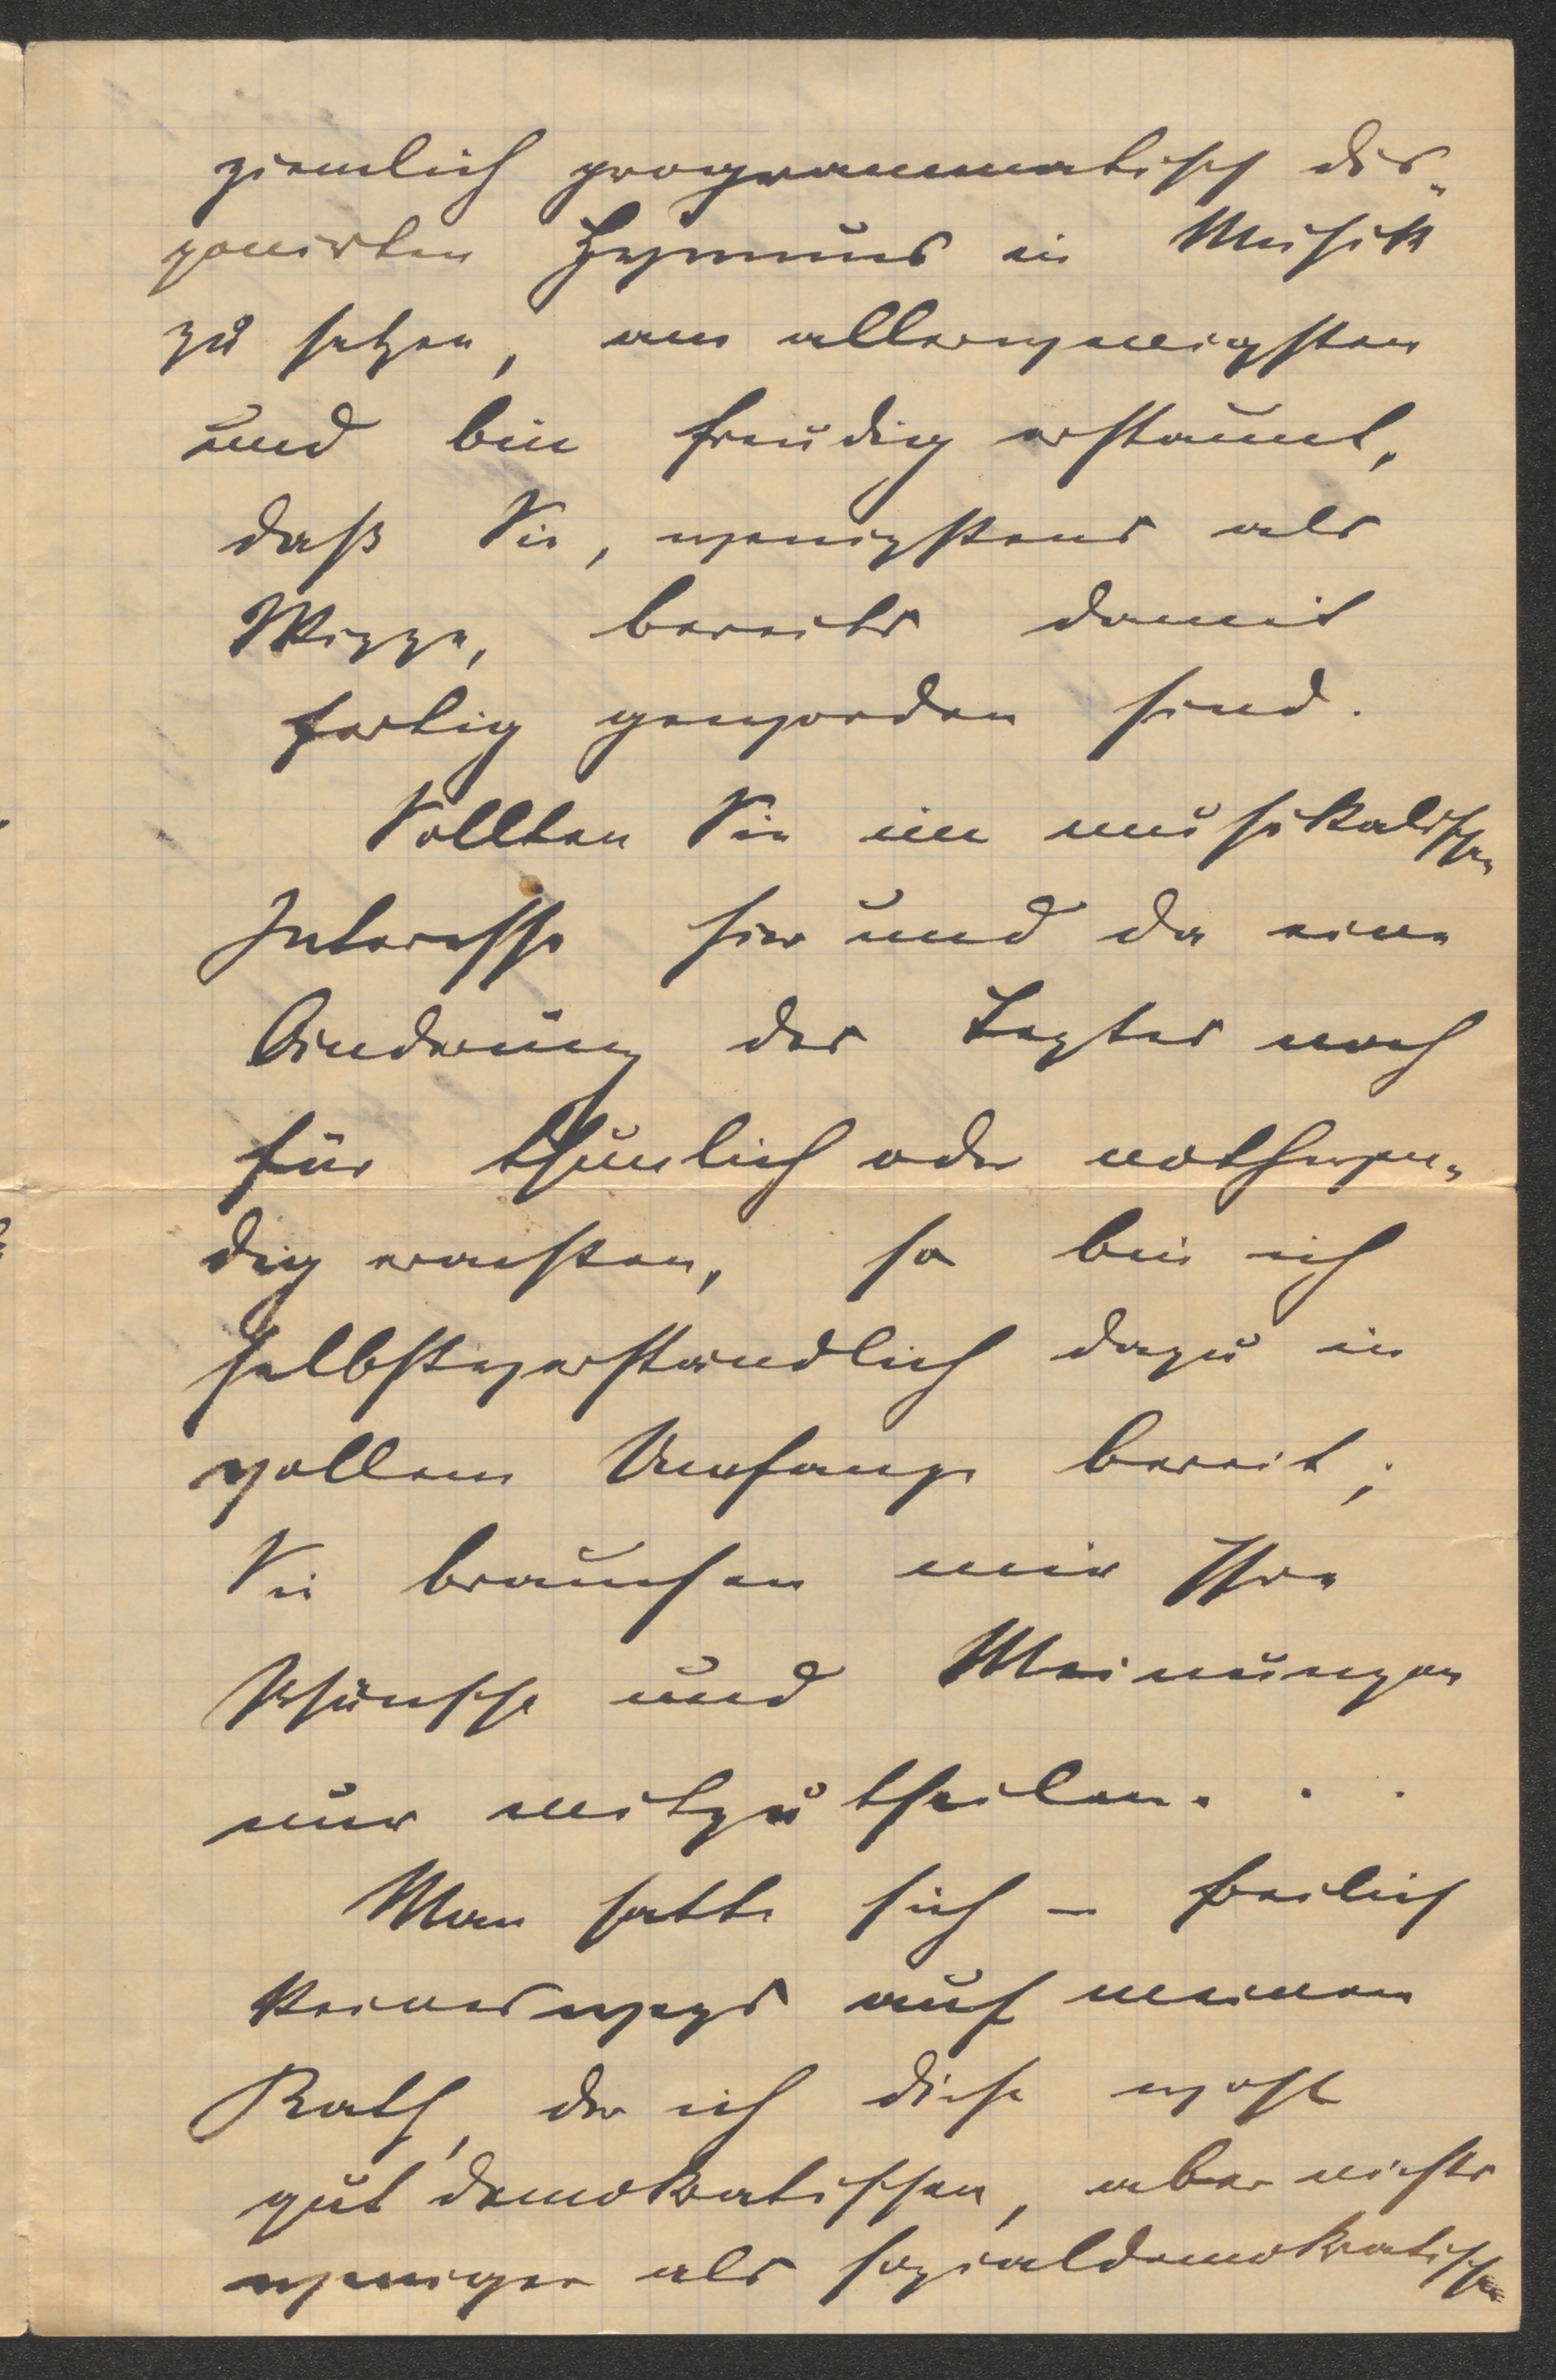 ziemlich programmatisch dis-
ponirten Hymnus in Musik
zu setzen, am allerwenigsten
und bin freudig erstaunt,
daß Sie, wenigstens als
Skizze, bereits damit
fertig geworden sind.
Sollten Sie im musikalischen
Interesse hier und da eine
Änderung des Textes noch
für thunlich oder nothwen-
dig erachten, so bin ich
selbstverständlich dazu in
vollem Umfange bereit;
Sie brauchen mir Ihre
Wünsche und Meinungen
nur mitzutheilen. . .
Man hatte sich – freilich
keineswegs auf meinen
Rath, der ich diese wohl
gut demokratischen, aber nichts
weniger als sozialdemokratischen